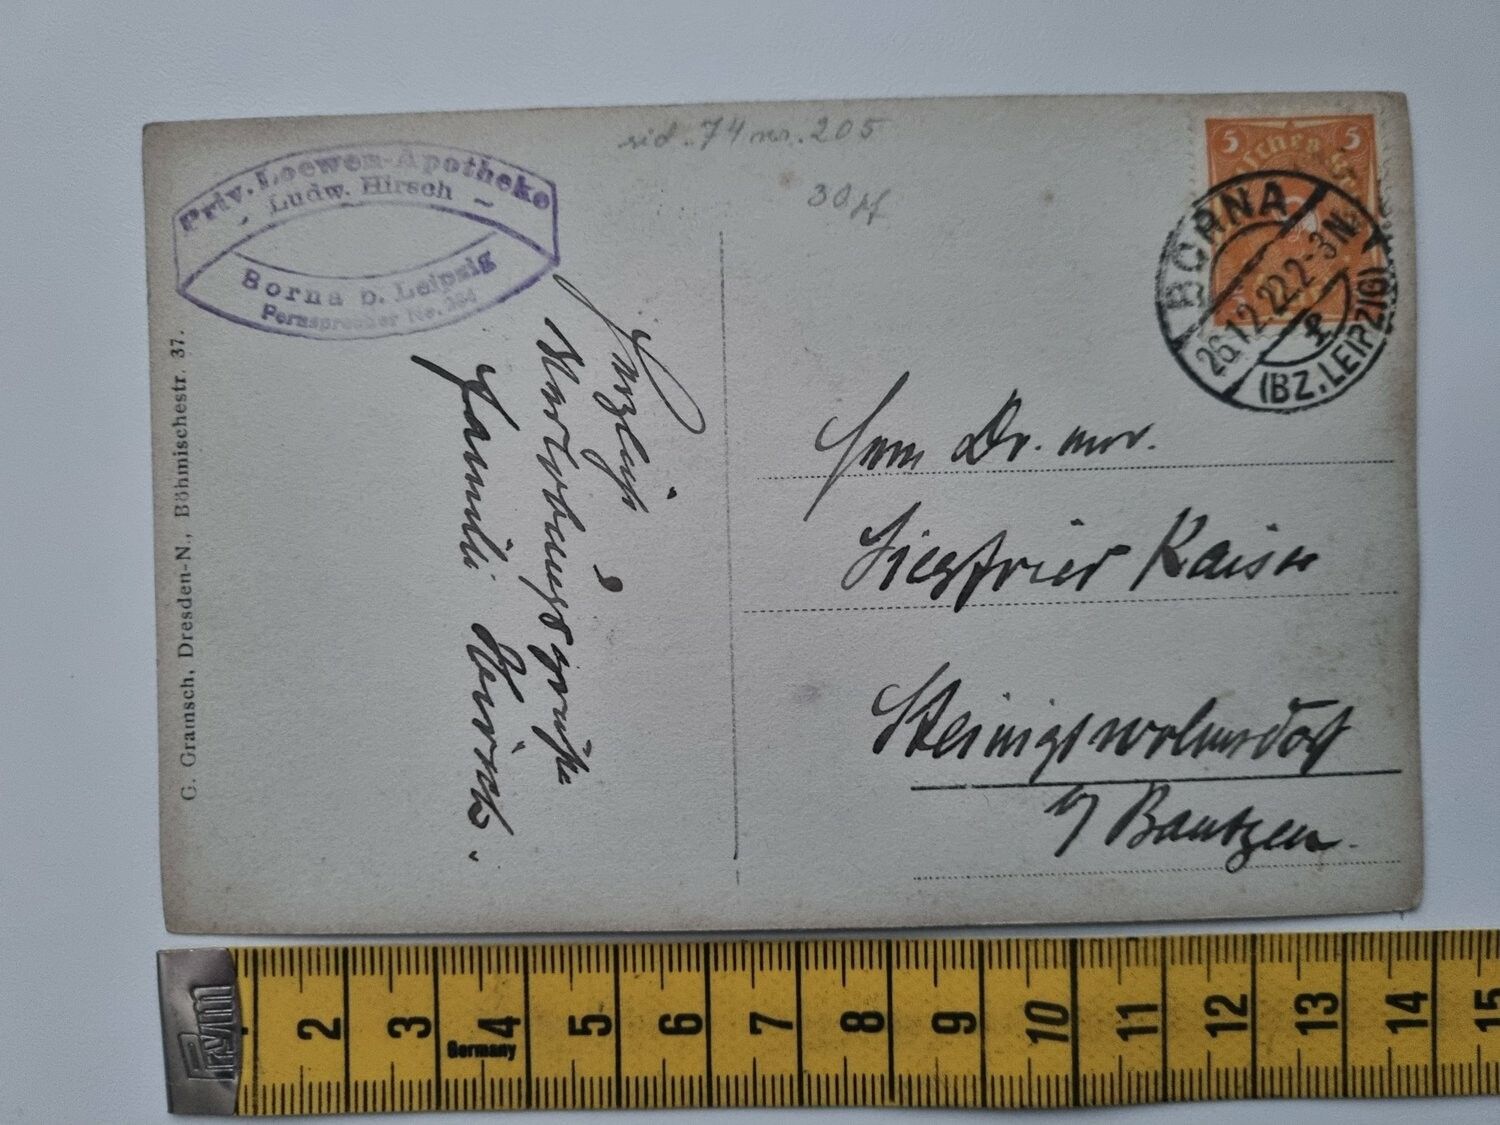 Priv. Loewen-Apotheke
- Ludw. Hirsch -
Borna b. Leipzig
Fernsprecher No. 264
rid. 74 nr. 205
30 pf
5 5
BORNA
26.12.22.2-3N.
(BZ. LEIPZIG)
Herrn Dr. mer.
Siegfried Kaiser
Steinigtwolmsdorf
b/ Bautzen.
Herzlich
Familie
G. Gramsch, Dresden-N., Böhmischestr. 37.
2 3 4 5 6 7 8 9 10 11 12 13 14 15
Germany
Prym